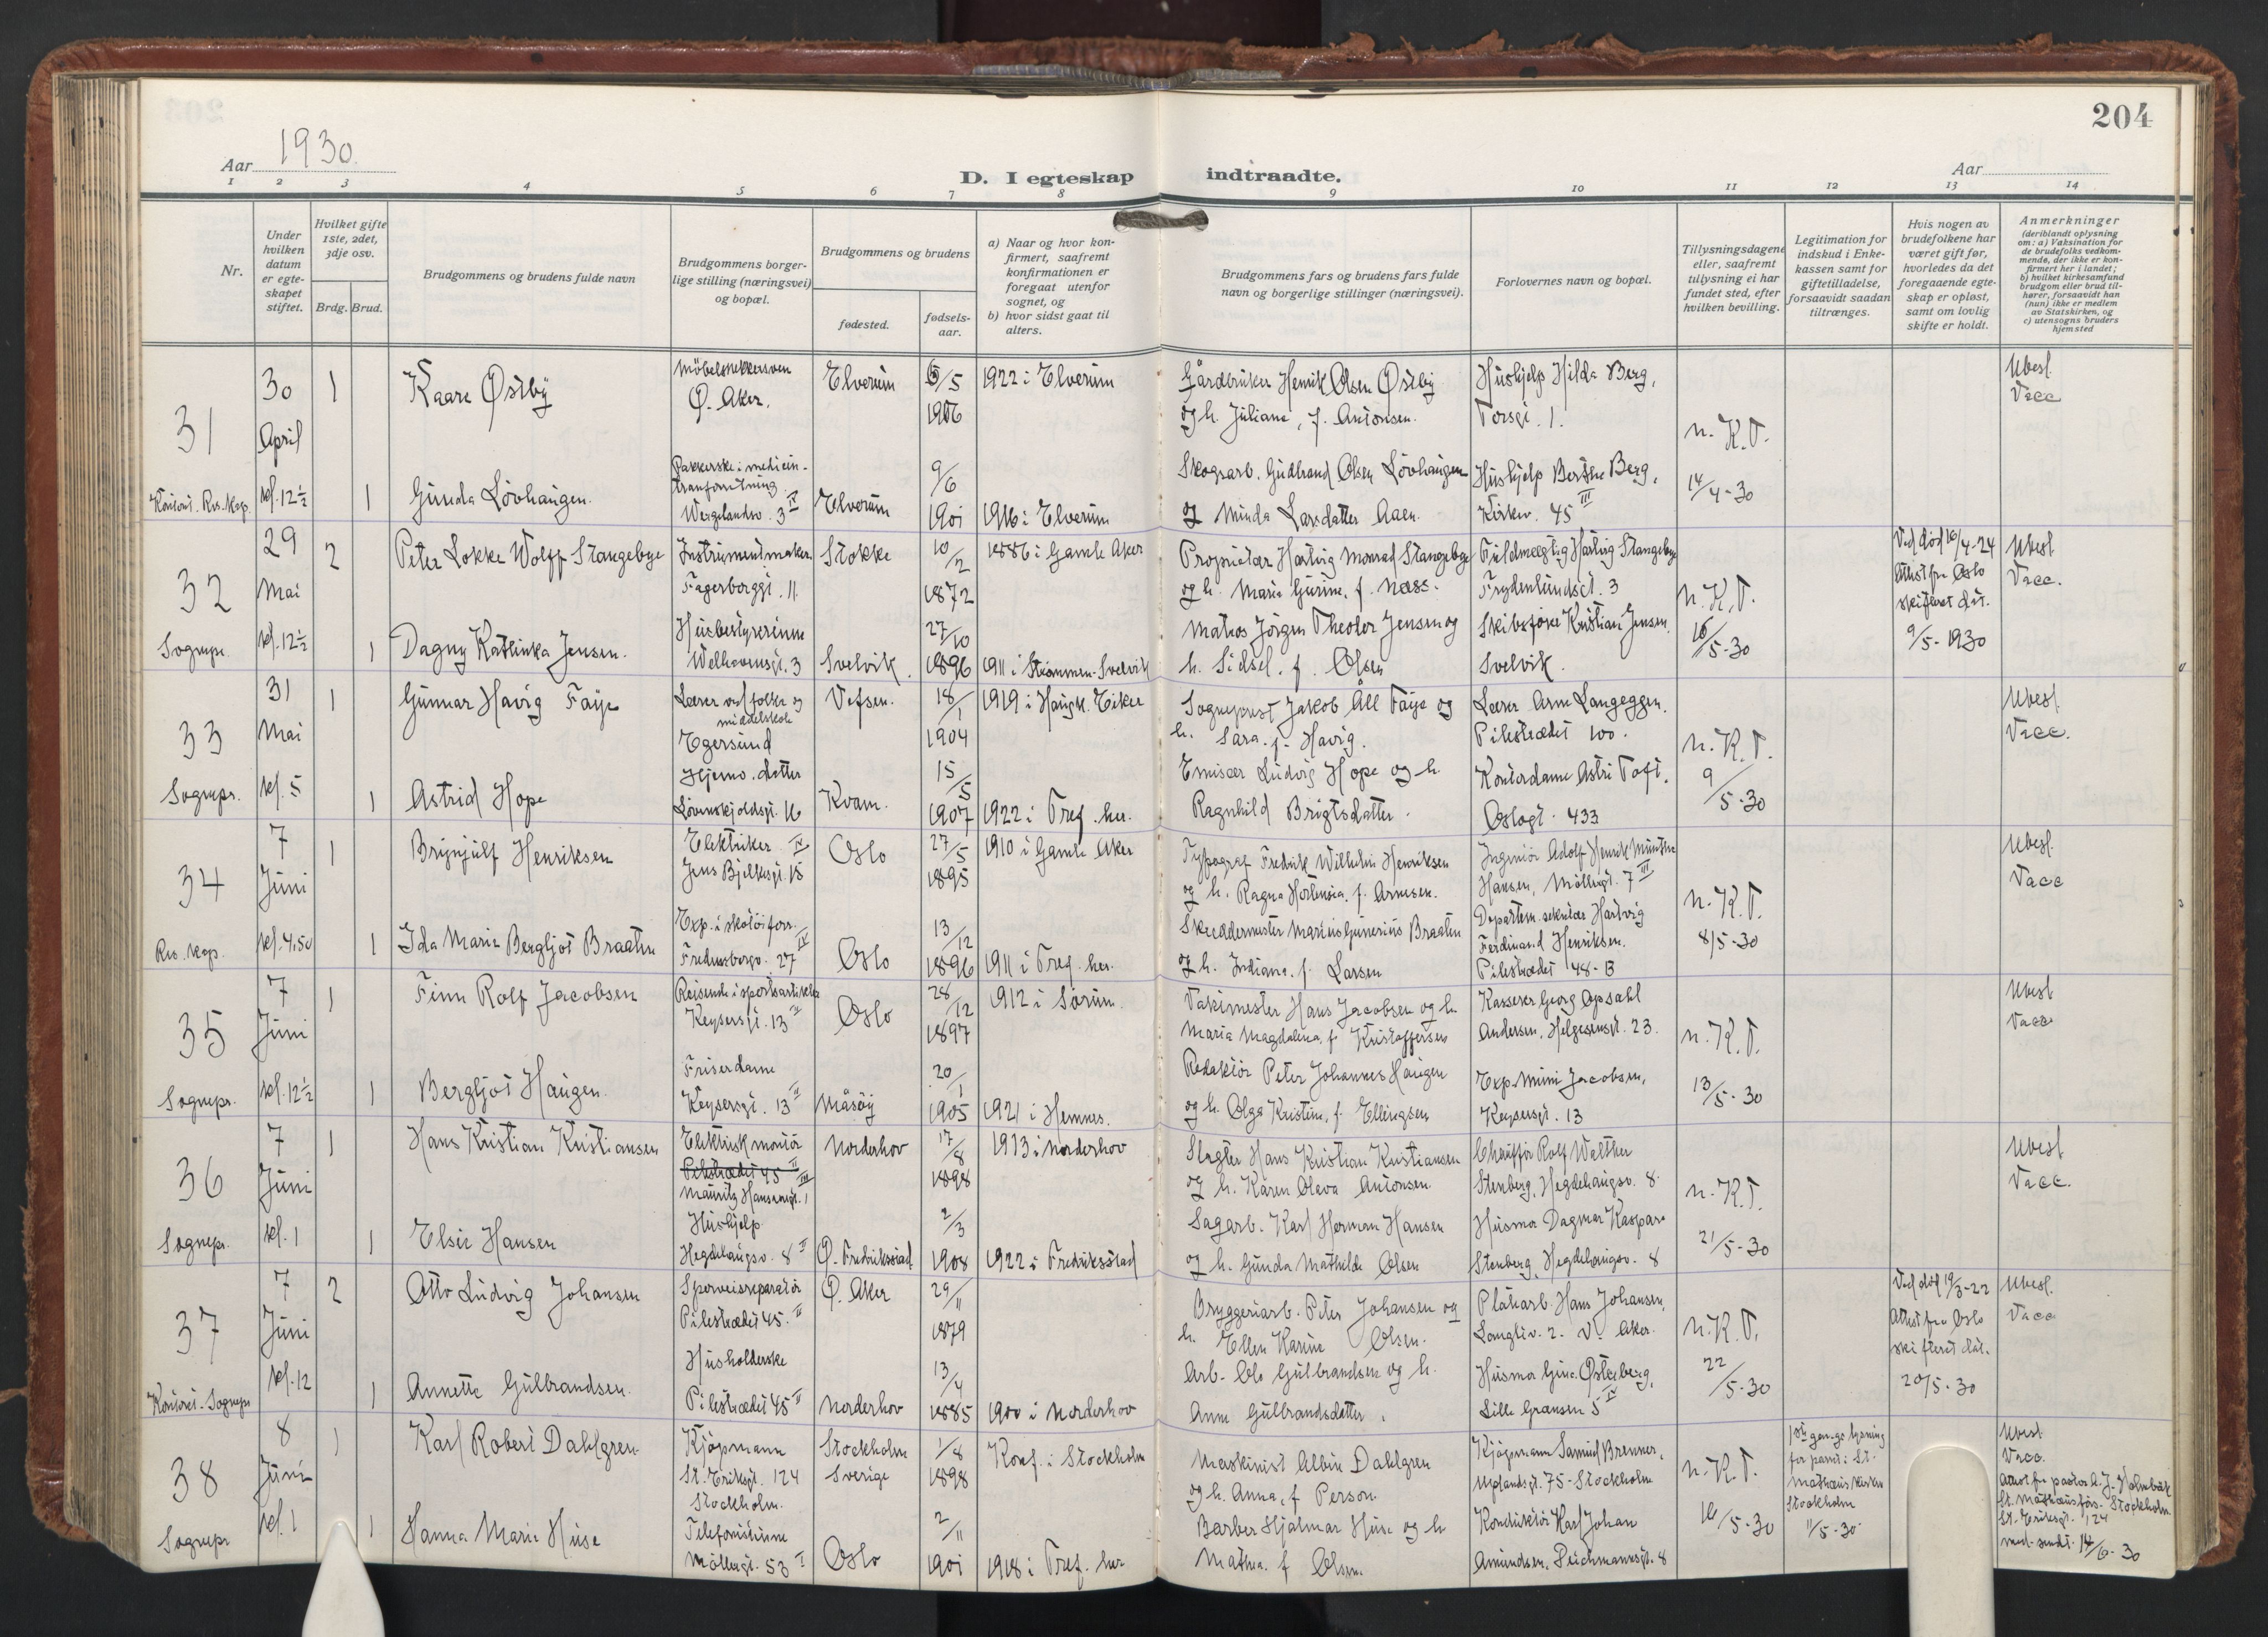 204
Aar 1930.
D. I egteskap indtraadte.
Aar
1 2 3 4 5 6 7 8 9 10 11 12 13 14
Nr.
Under hvilken datum er egteskapet stiftet.
Hvilket gifte 1ste, 2det, 3dje osv.
Brdg. Brud.
Brudgommens og brudens fulde navn
Brudgommens borgerlige stilling (næringsvei) og bopæl.
Brudgommens og brudens
fødested.
fødselsaar.
a) Naar og hvor konfirmert, saafremt konfirmationen er foregaat utenfor sognet, og
b) hvor sidst gaat til alters.
Brudgommens fars og brudens fars fulde navn og borgerlige stillinger (næringsvei).
Forlovernes navn og bopæl.
Tillysningsdagene eller, saafremt tillysning ei har fundet sted, efter hvilken bevilling.
Legitimation for indskud i Enkekassen samt for giftetilladelse, forsaavidt saadan tiltrænges.
Hvis nogen av brudefolkene har været gift før, hvorledes da det foregaaende egteskap er opløst, samt om lovlig skifte er holdt.
Anmerkninger (deriblandt oplysning om: a) Vaksination for de brudefolks vedkommende, der ikke er konfirmert her i landet; b) hvilket kirkesamfund brudgom eller brud tilhører, forsaavidt han (hun) ikke er medlem av Statskirken, og c) utensogns bruders hjemsted
31
30 April kl. 12½
Kontoret. Res. Kap.
1 Kaare Østby
Møbelsnekkersven
Ø. Aker.
Elverum
5/5 1906
1922 i Elverum
Gårdbruker Henrik Olsen Østby
og h. Juliane, f. Antonsen.
Hushjelp Hilda Berg,
Torsgt. 1.
n. K. T.
14/4-30
Ubesl.
Vacc
1 Gunda Løvhaugen.
Pakkerske i medicinalforretning
Wergelandsv. 3 II
Elverum
9/6 1901
1916 i Elverum
Skogsarb. Gudbrand Olsen Løvhaugen
og Minda Larsdatter Aaen.
Hushjelp Berthe Berg,
Kirkev. 45 III
32
29 Mai kl. 12½
Sognepr.
2 Peter Lokke Wolff Stangebye
Instrumentmaker.
Fagerborggt. 11.
Stokke
10/2 1872
1886 i Gamle Aker
Proprietær Hartvig Monrad Stangebye
og h. Marie Gurine, f. Næss.
Fuldmægtig Hartvig Stangebye
Frydenlundsgt. 3
n. K. T.
16/5-30
Ved død 16/4-24
Attest fra Oslo
skifteret dat.
9/5-1930
Ubesl.
Vacc.
1 Dagny Kathinka Jensen.
Husbestyrerinne
Welhavensgt. 3
Svelvik.
27/10 1896
1911 i Strømmen-Svelvik
Matros Jørgen Theodor Jensen og
h. Sidsel. f. Olsen
Skibsfører Kristian Jensen.
Svelvik.
33
31 Mai kl. 5
Sognepr.
1 Gunnar Havig Faye
Lærer ved folke og
middelskole
Egersund
Vefsen.
18/1 1904
1919 i Haugs. Eiker
Sogneprest Jakob Åll Faye og
h. Sara. f. Havig.
Lærer Arne Langeggen.
Pilestrædet 100.
n. K. T.
9/5-30
Ubesl.
Vacc.
1 Astrid Hope
Hjemv. datter
Løvenskjoldsgt. 16
Kvam.
15/5 1907
1922 i Tref. her.
Emisær Ludvig Hope og h.
Ragnhild Brigtsdatter.
Kontordame Astri Toft.
Oslogt. 433
34
7 Juni kl. 4.50
Res. kap.
1 Brynjulf Henriksen
Elektriker IV
Jens Bjelkesgt. 15
Oslo
27/5 1895
1910 i Gamle Aker
Typograf Fredrik Wilhelm Henriksen
og h. Ragna Hortensia. f. Arnesen.
Ingeniør Adolf Henrik Munthe
Hansen, Møllergt. 7 III
n. K. T.
8/5-30
Ubesl.
Vacc
1 Ida Marie Bergljot Braaten
Exp. i skotøiforr.
Fredensborgv. 27 IV
Oslo
13/12 1896
1911 i Tref. her.
Skreddermester Marius Gunerius Braaten
og h. Indiana. f. Larsen
Departem. sekretær Hartvig
Ferdinand Henriksen.
Pilestrædet 48-B
35
7 Juni kl. 12½
Sognepr.
1 Finn Rolf Jacobsen
Reisende i sportsartikler
Keysersgt. 13 II
Oslo
28/12 1897
1912 i Sørum.
Vaktmester Hans Jacobsen og h.
Maria Magdalena, f. Kristoffersen
Kasserer Georg Opsahl
Andersen, Helgesensgt. 23.
n. K. T.
13/5-30
Ubesl
Vacc
1 Bergljot Haugen.
Friserdame
Keysersgt. 13 II
Måsøy
20/1 1905
1921 i Hemnes.
Redaktør Peter Johannes Haugen
og h. Olga Kristine, f. Ellingsen
Exp. Mimi Jacobsen,
Keysersgt. 13
36
7 Juni kl. 1
Sognepr.
1 Hans Kristian Kristiansen
Elektrisk montør
Pilestrædet 45 II
Mauritz Hansensgt. 1 III
Norderhov
17/8 1898
1913 i Norderhov
Slagter Hans Kristian Kristiansen
og h. Karen Olava Antonsen.
Chauffør Rolf Walther
Stenberg, Hegdehaugsv. 8.
n. K. T.
21/5-30
Ubesl
Vacc.
1 Elsie Hansen
Hushjelp
Hegdehaugsv. 8 II
Ø. Fredriksstad
2/3 1908
1922 i Fredriksstad
Sagarb. Karl Herman Hansen
og h. Gunda Mathilde Olsen
Husmor Dagmar Kaspara
Stenberg, Hegdehaugsv. 8
37
7 Juni kl. 12
Kontoret. Sognepr.
2 Otto Ludvig Johansen
Sporveisreparatør
Pilestrædet 45. II
Ø. Aker
29/11 1879
Bryggeriarb. Peter Johansen og
h. Ellen Karine Olsen.
Platearb. Hans Johansen,
Langliv. 2. V. Aker.
n. K. T.
22/5-30
Ved død 19/3-22
Attest fra Oslo
skifteret dat.
20/5-30
Ubesl.
Vacc
1 Annette Gulbrandsen.
Husholderske
Pilestrædet 45 II
Norderhov
13/4 1885
1900 i Norderhov
Arb. Ole Gulbrandsen og h.
Anne Gulbrandsdatter.
Husmor Gina Østerberg,
Lille Grænsen 5 IV
38
8 Juni kl. 1
Sognepr
1 Karl Robert Dahlgren
Kjøpmann
St. Eriksgt. 124
Stockholm.
Stockholm
Sverige
1/8 1898
Konf. i Stockholm
Maskinist Albin Dahlgren
og h. Anna, f. Person.
Kjøpmann Samuel Brenner,
Uplandsgt. 75-Stockholm
n. K. T.
16/5-30
1ste gangs lysning
for parret i St.
Mathæus kirken
Stockholm
11/5-30
Ubesl.
Vacc.
Attest fra pastor A. J. Holmbäck
St. Mathæus förs. Stockholm
St. Eriksgt. 124
med. sendt. 14/6-30
1 Hanna Marie Huse
Telefonistinne
Møllergt. 53 I
Oslo
2/11 1901
1918 i Tref. her
Barber Hjalmar Huse og h
Mathea. f. Olsen.
Konduktør Karl Johan
Amundsen, Deichmannsgt. 8